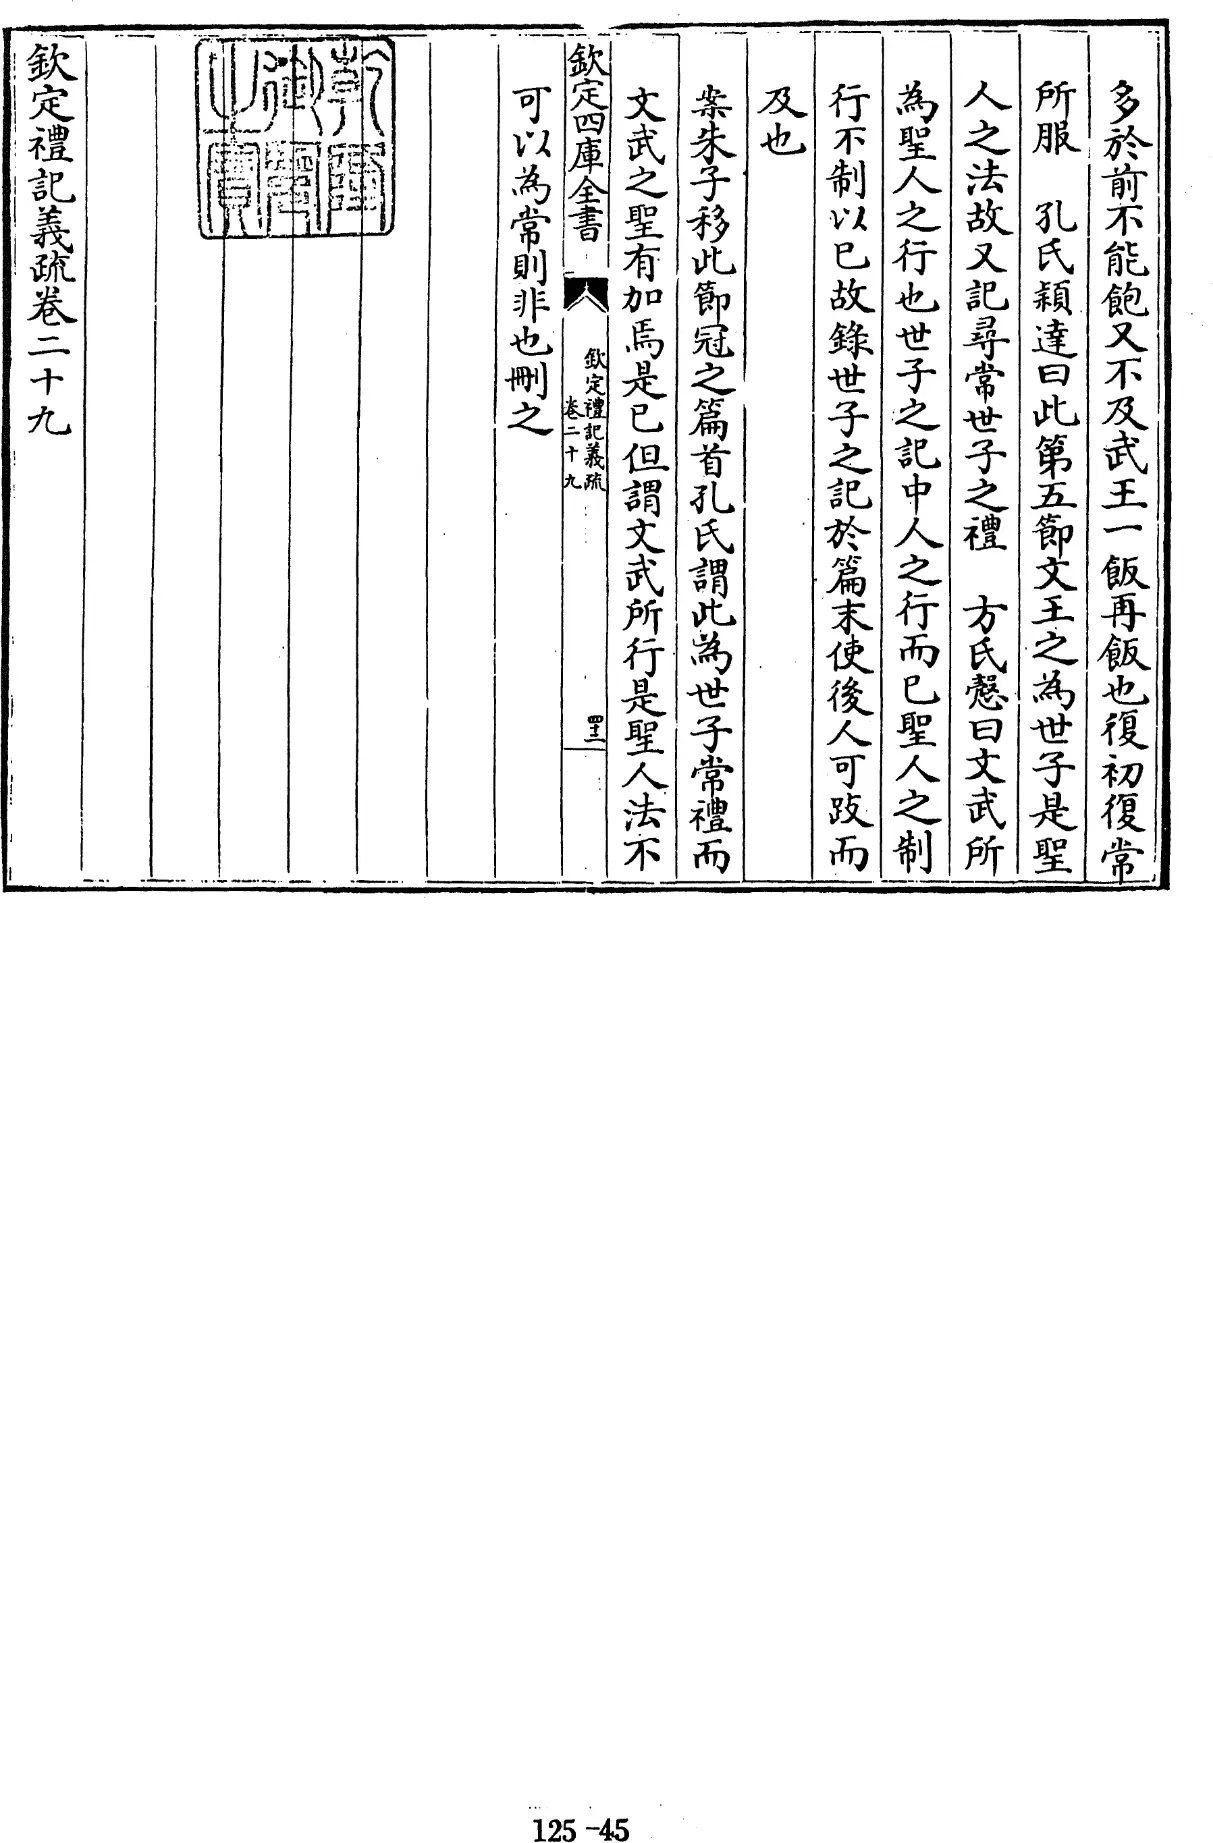 多於前不能飽又不及武王一飯再飯也復初復常
所服　孔氏穎達曰此第五節文王之為世子是聖
人之法故又記尋常世子之禮　方氏慤曰文武所
為聖人之行也世子之記中人之行而已聖人之制
行不制以已故錄世子之記於篇末使後人可跂而
及也
案朱子移此節冠之篇首孔氏謂此為世子常禮而
文武之聖有加焉是已但謂文武所行是聖人法不
欽定四庫全書
欽定禮記義疏
卷二十九
四十二
可以為常則非也刪之
乾隆御覽之寶
欽定禮記義疏卷二十九
125-45